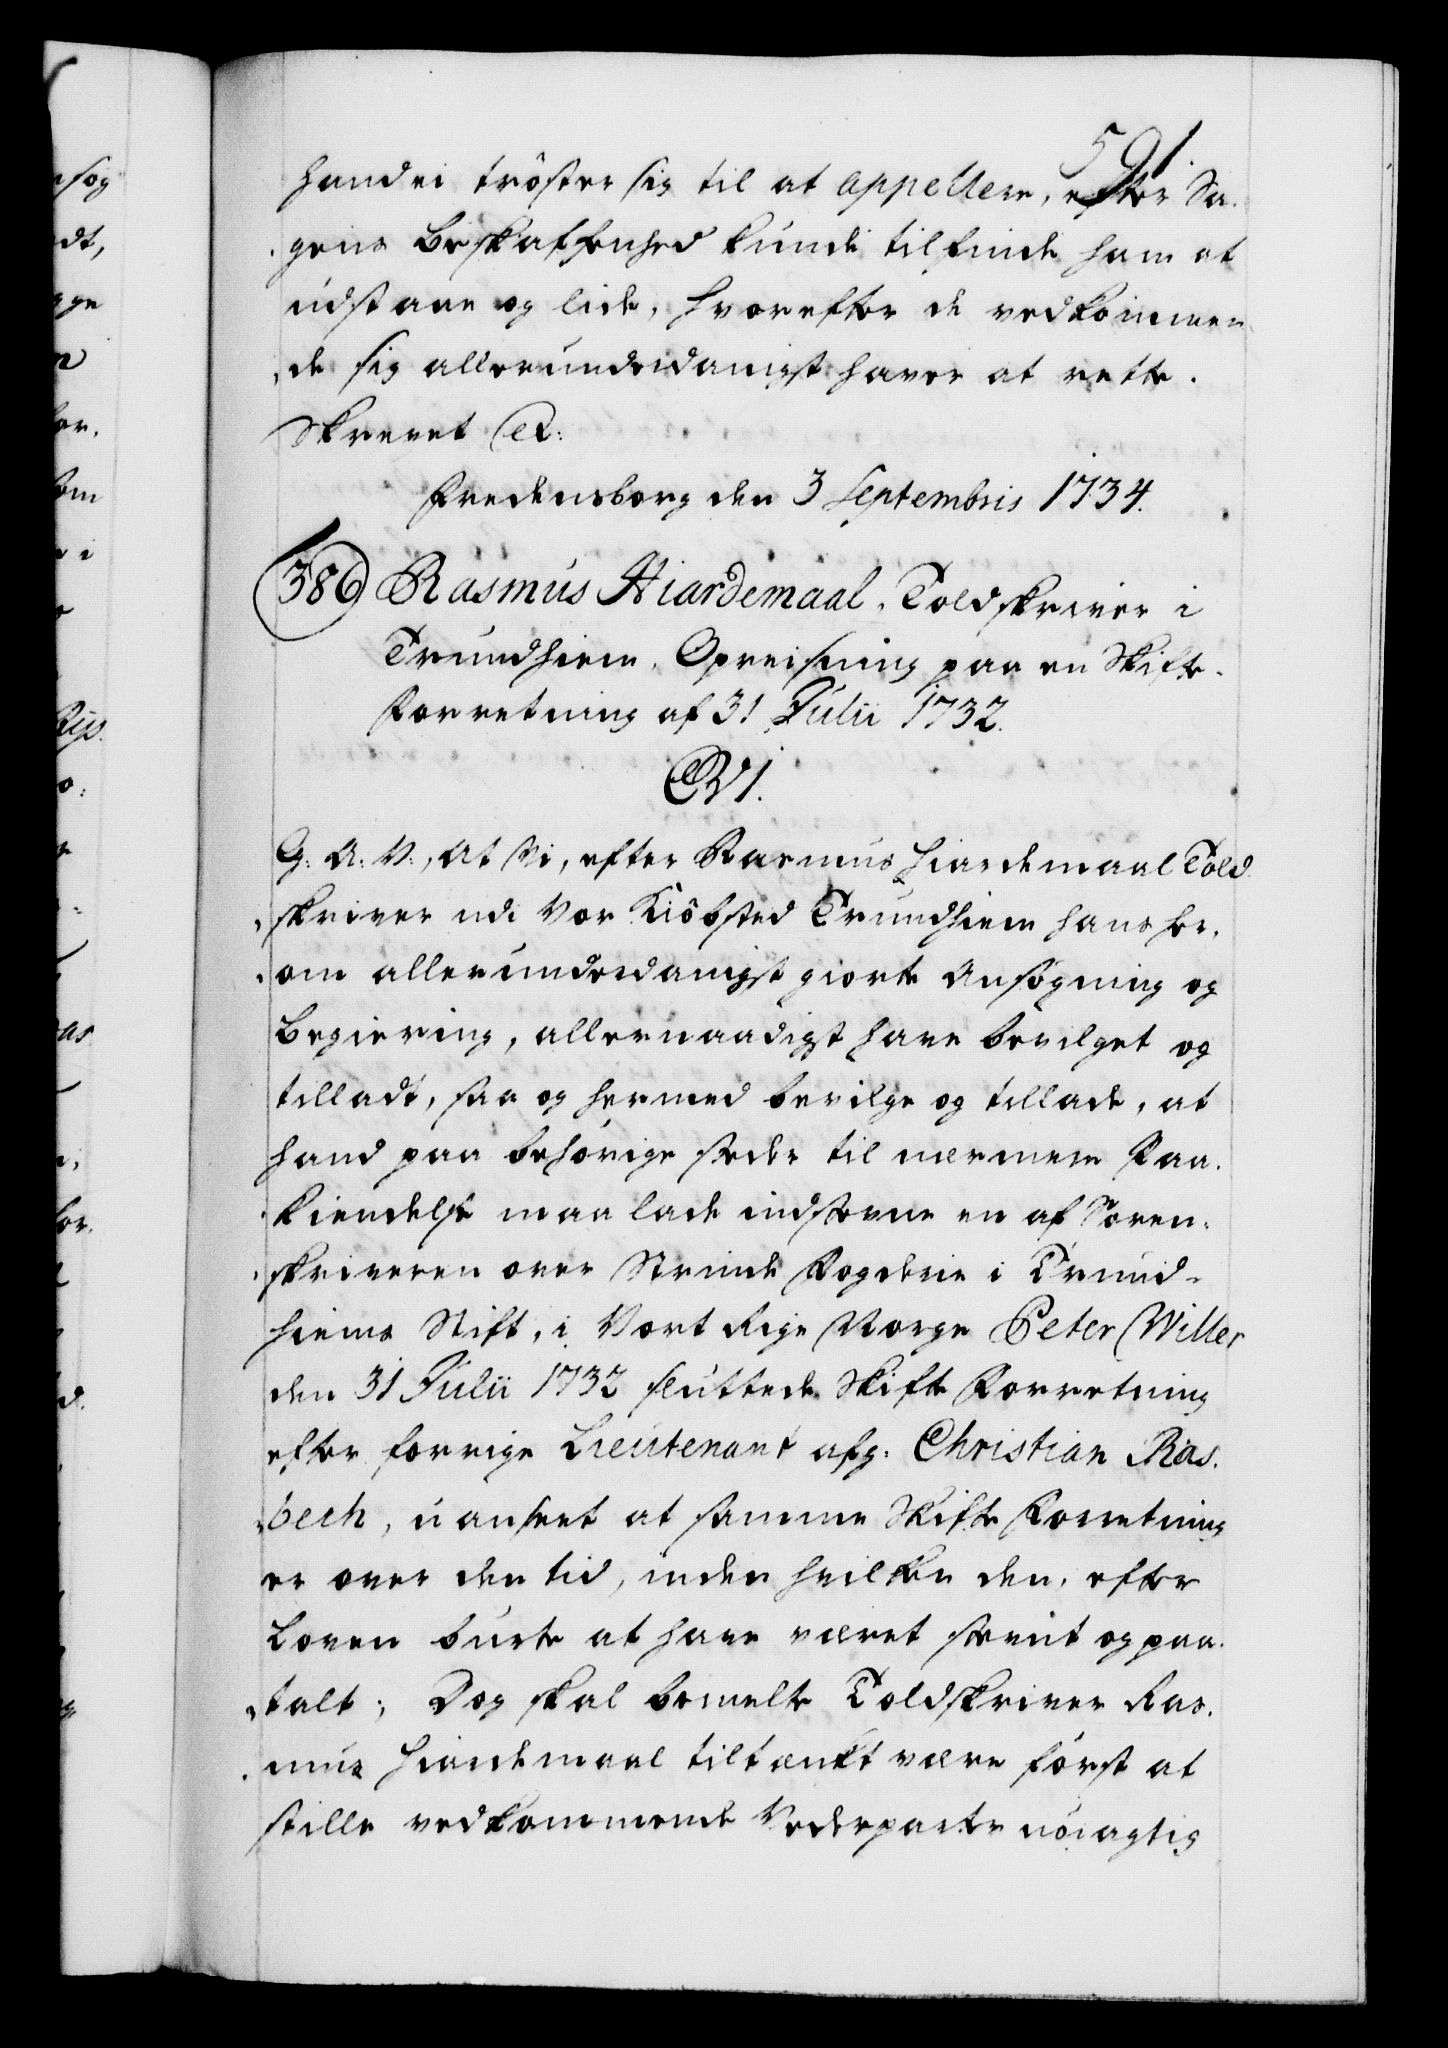 591.
hand ei tröster sig til at appellere, efter Sa-
gens Beskaffenhed kunde tilfinde ham at
udstaae og lide, hvorefter de vedkommen-
de sig allerunderdanigst haver at rette.
Skrevet etc:
Fredensborg den 3 Septembris 1734.
386) Rasmus Hiardemaal, Toldskriver i
Trundhiem, Opreisning paa en Skifte-
Forretning af 31 Julii 1732.
C VI.
G: A: V:, At Vi, efter Rasmus Hiardemaal Told-
skriver udi Vor Kiöbsted Trundhiem hans her-
om allerunderdanigst giorte Ansøgning og
Begiering, allernaadigst have bevilget og
tilladt, saa og hermed bevilge og tillade, at
hand paa behörige steder til nærmere Paa-
kiendelse maa lade indstevne en af Soren-
skriveren over Strinde Fogderie i Trund-
hiems Stift, i Vort Rige Norge Peter Willer
den 31 Julii 1732 sluttede Skifte Forretning
efter forrige Lieutenant afg: Christian Ras-
bech, uanseet at samme Skifte Forretning
er over den tid, inden hvilken den, efter
Loven burte at have været stevnt og paa-
talt; Dog skal bemelte Toldskriver Ras-
mus Hiardemaal tiltænkt være först at
stille vedkommende Vederparter nöiagtig